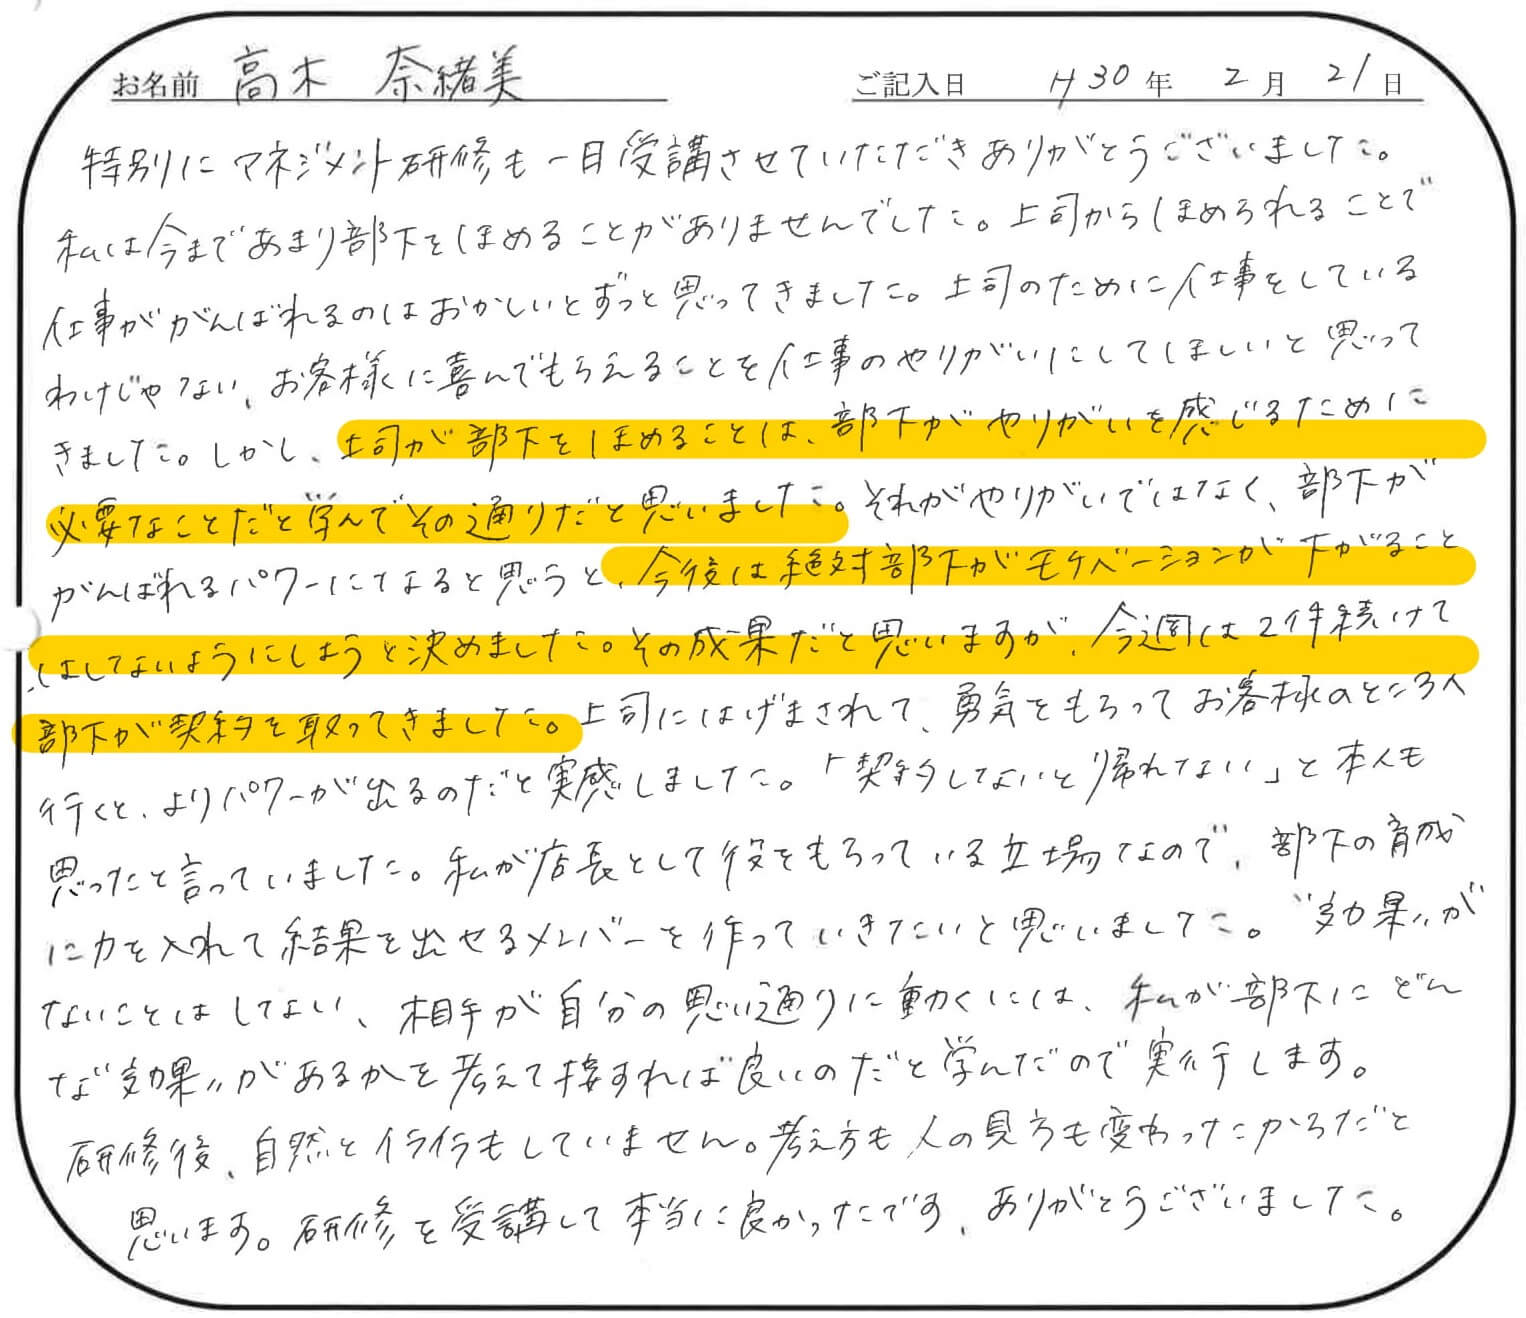 お名前 高木 奈緒美 ご記入日 H30年 2月 21日
特別にマネジメント研修も一日受講させていただきありがとうございました。
私は今まであまり部下をほめることがありませんでした。上司からほめられることで
仕事ががんばれるのはおかしいとずっと思ってきました。上司のために仕事をしている
わけじゃない、お客様に喜んでもらえることを仕事のやりがいにしてほしいと思って
きました。しかし、上司が部下をほめることは、部下がやりがいを感じるために
必要なことだと学んでその通りだと思いました。それがやりがいではなく、部下が
がんばれるパワーになると思うと、今後は絶対部下がモチベーションが下がること
はしないようにしようと決めました。その成果だと思いますが、今週は2件続けて
部下が契約を取ってきました。上司にはげまされて、勇気をもらってお客様のところへ
行くと、よりパワーが出るのだと実感しました。「契約しないと帰れない」と本人も
思ったと言っていました。私が店長として役をもらっている立場なので、部下の育成
に力を入れて結果を出せるメンバーを作っていきたいと思いました。"効果"が
ないことはしない、相手が自分の思い通りに動くには、私が部下にどん
な"効果"があるかを考えて接すれば良いのだと学んだので実行します。
研修後、自然とイライラもしていません。考え方も人の見方も変わったからだと
思います。研修を受講して本当に良かったです、ありがとうございました。